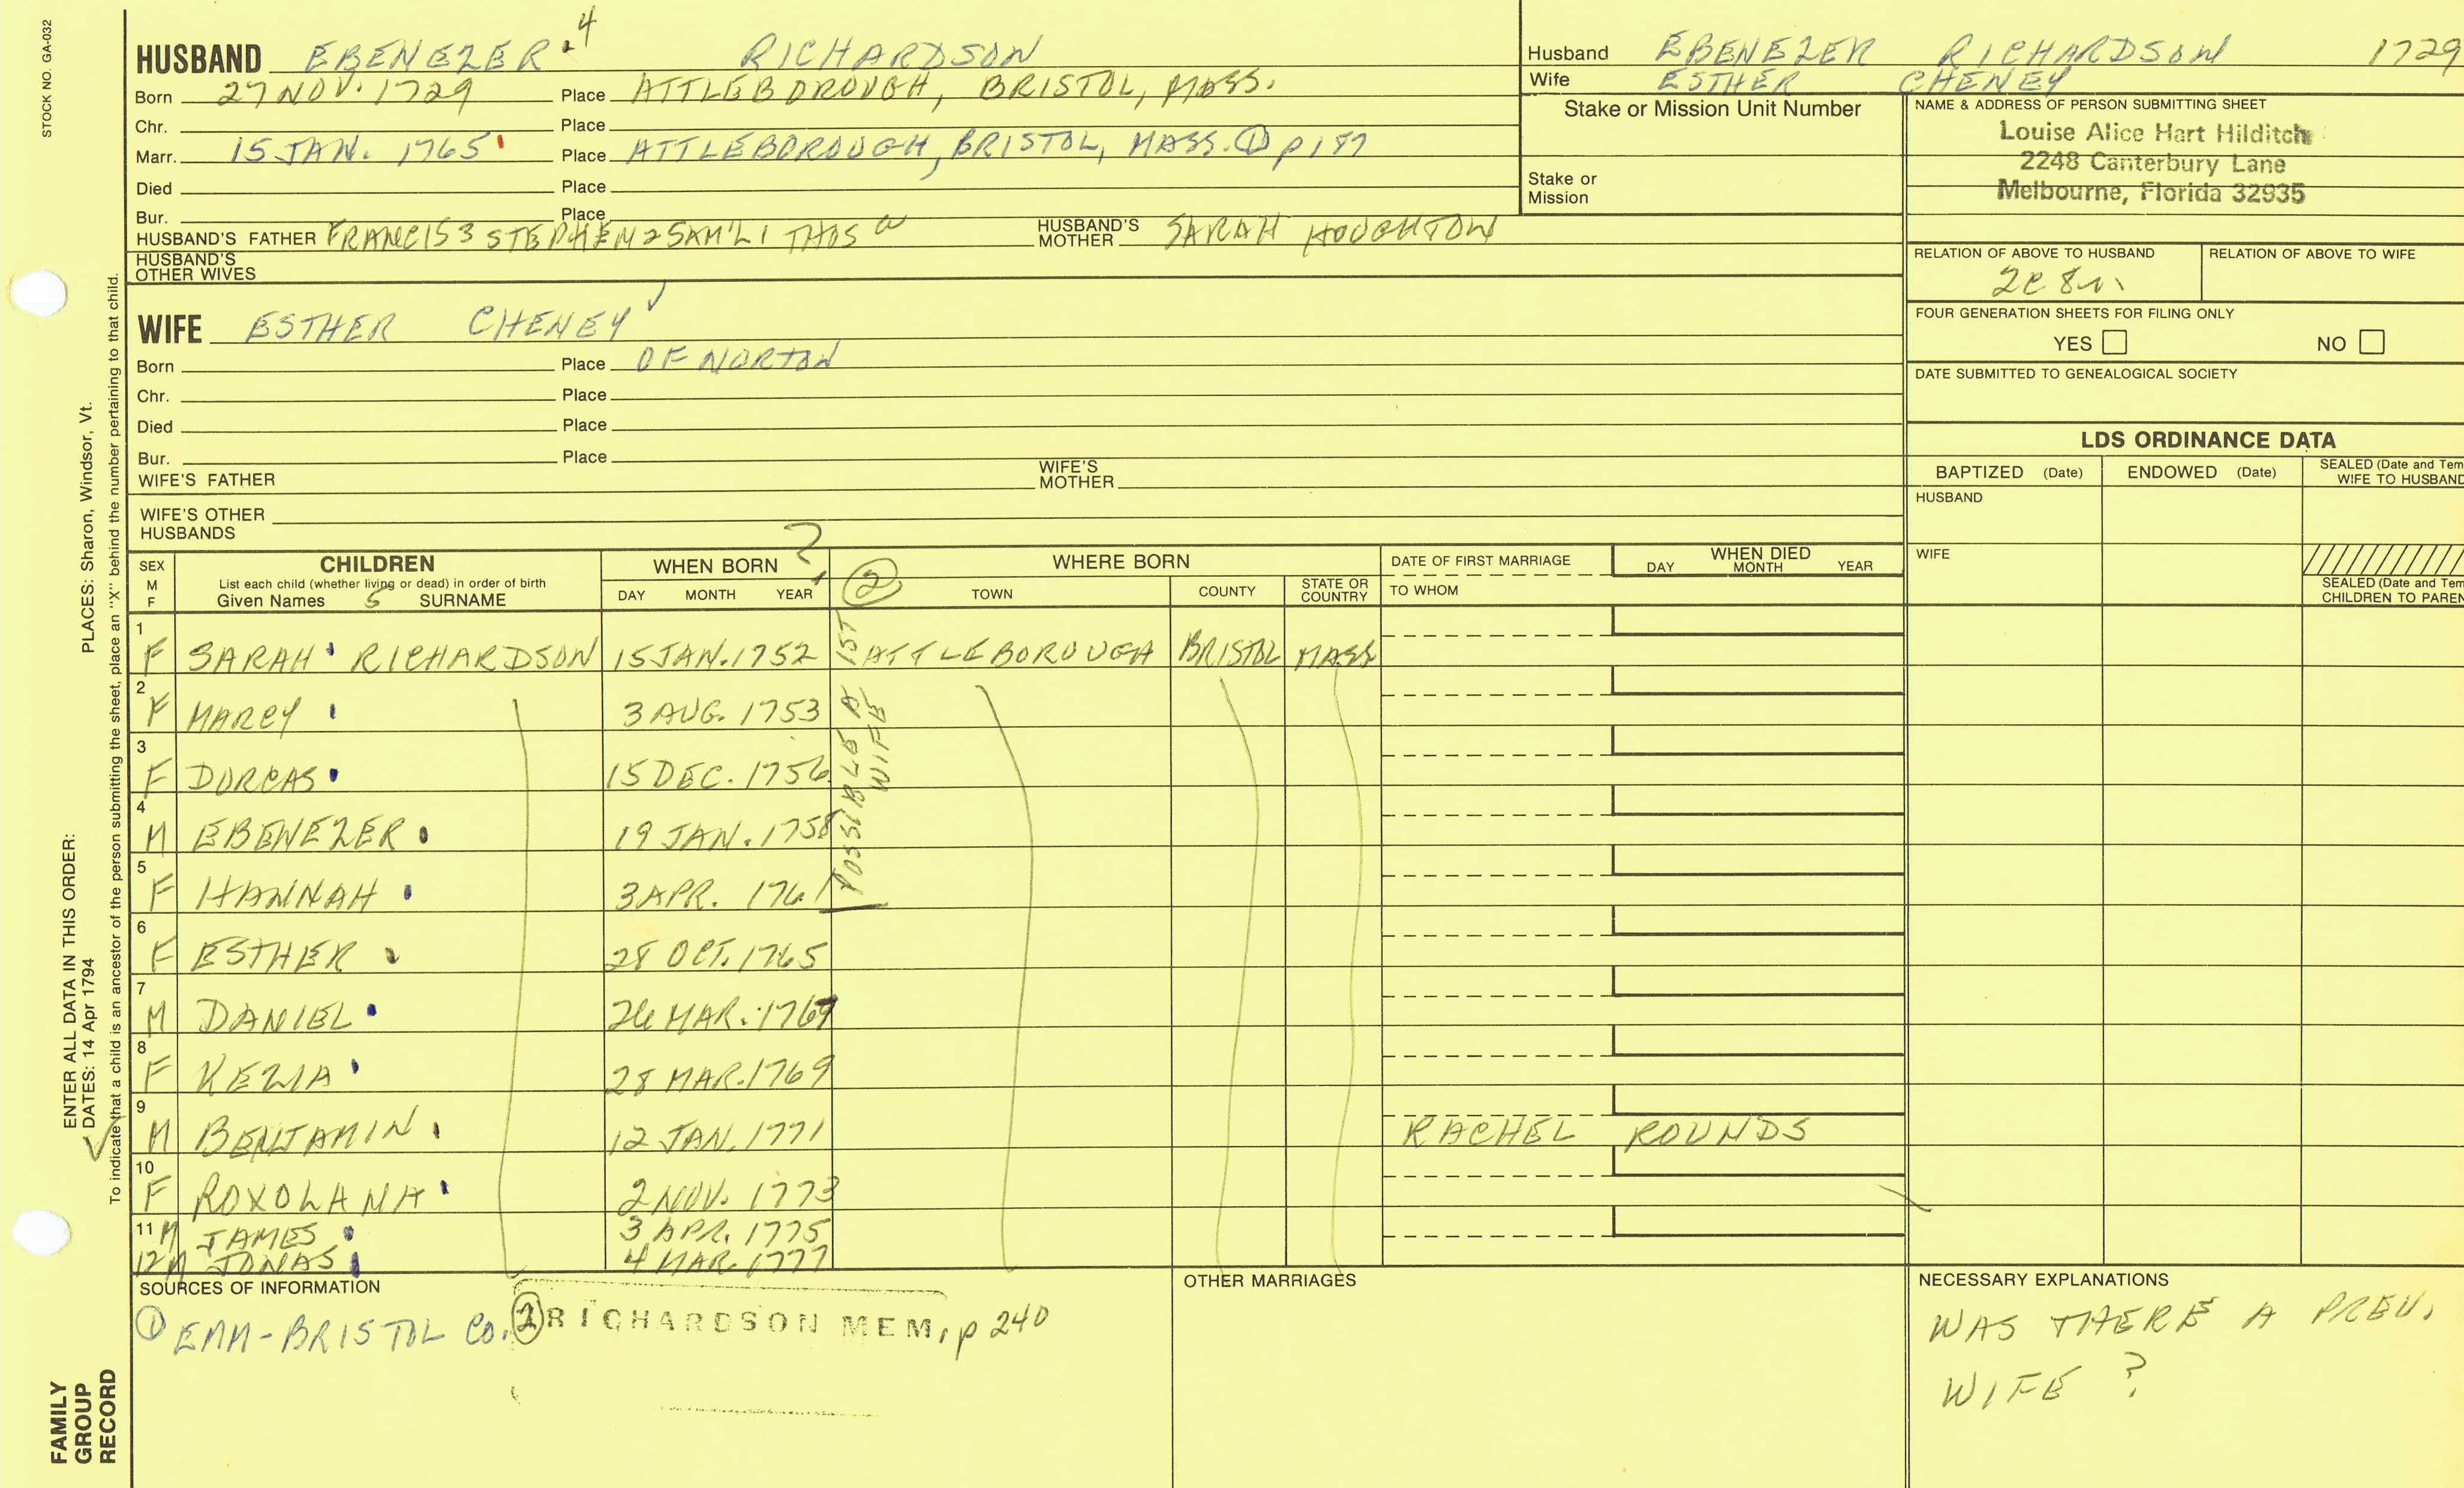 STOCK NO. GA-032
HUSBAND EBENEZER.4 RICHARDSON
Born 27 NOV. 1729 Place ATTLEBOROUGH, BRISTOL, MASS.
Chr. Place
Marr. 15 JAN. 1765 Place ATTLEBOROUGH, BRISTOL, MASS. ① p 187
Died Place
Bur. Place
HUSBAND'S FATHER FRANCIS 3 STEPHEN 2 SAM'L 1 THOS HUSBAND'S MOTHER SARAH HOUGHTON
HUSBAND'S OTHER WIVES
WIFE ESTHER CHENEY ✓
Born Place OF NORTON
Chr. Place
Died Place
Bur. Place
WIFE'S FATHER WIFE'S MOTHER
WIFE'S OTHER HUSBANDS
Husband EBENEZER RICHARDSON 1729
Wife ESTHER CHENEY
Stake or Mission Unit Number
Stake or Mission
NAME & ADDRESS OF PERSON SUBMITTING SHEET
Louise Alice Hart Hilditch
2248 Canterbury Lane
Melbourne, Florida 32935
RELATION OF ABOVE TO HUSBAND RELATION OF ABOVE TO WIFE
FOUR GENERATION SHEETS FOR FILING ONLY
YES NO
DATE SUBMITTED TO GENEALOGICAL SOCIETY
LDS ORDINANCE DATA
BAPTIZED (Date) ENDOWED (Date) SEALED (Date and Tem
WIFE TO HUSBAND
HUSBAND
WIFE
SEALED (Date and Tem
CHILDREN TO PAREN
SEX M F
CHILDREN
List each child (whether living or dead) in order of birth
Given Names 5 SURNAME
WHEN BORN ?
DAY MONTH YEAR
② WHERE BORN
TOWN COUNTY STATE OR COUNTRY
DATE OF FIRST MARRIAGE
TO WHOM
WHEN DIED
DAY MONTH YEAR
1 F SARAH RICHARDSON 15 JAN. 1752 ATTLEBOROUGH BRISTOL MASS
2 F MARCY 3 AUG. 1753
3 F DORCAS 15 DEC. 1756
4 M EBENEZER 19 JAN. 1758
5 F HANNAH 3 APR. 1761
POSSIBLE A 1ST
WIFE
6 F ESTHER 28 OCT. 1765
7 M DANIEL 26 MAR. 1767
8 F KEZIA 28 MAR. 1769
9 M BENJAMIN 12 JAN. 1771 RACHEL ROUNDS
10 F ROXOLANA 2 NOV. 1773
11 M JAMES 3 APR. 1775
12 M JONAS 4 MAR. 1777
SOURCES OF INFORMATION
① EMM-BRISTOL CO. ② RICHARDSON MEM, p 240
OTHER MARRIAGES
NECESSARY EXPLANATIONS
WAS THERE A PREV.
WIFE ?
PLACES: Sharon, Windsor, Vt.
ENTER ALL DATA IN THIS ORDER:
DATES: 14 Apr 1794
To indicate that a child is an ancestor of the person submitting the sheet, place an "X" behind the number pertaining to that child.
FAMILY
GROUP
RECORD